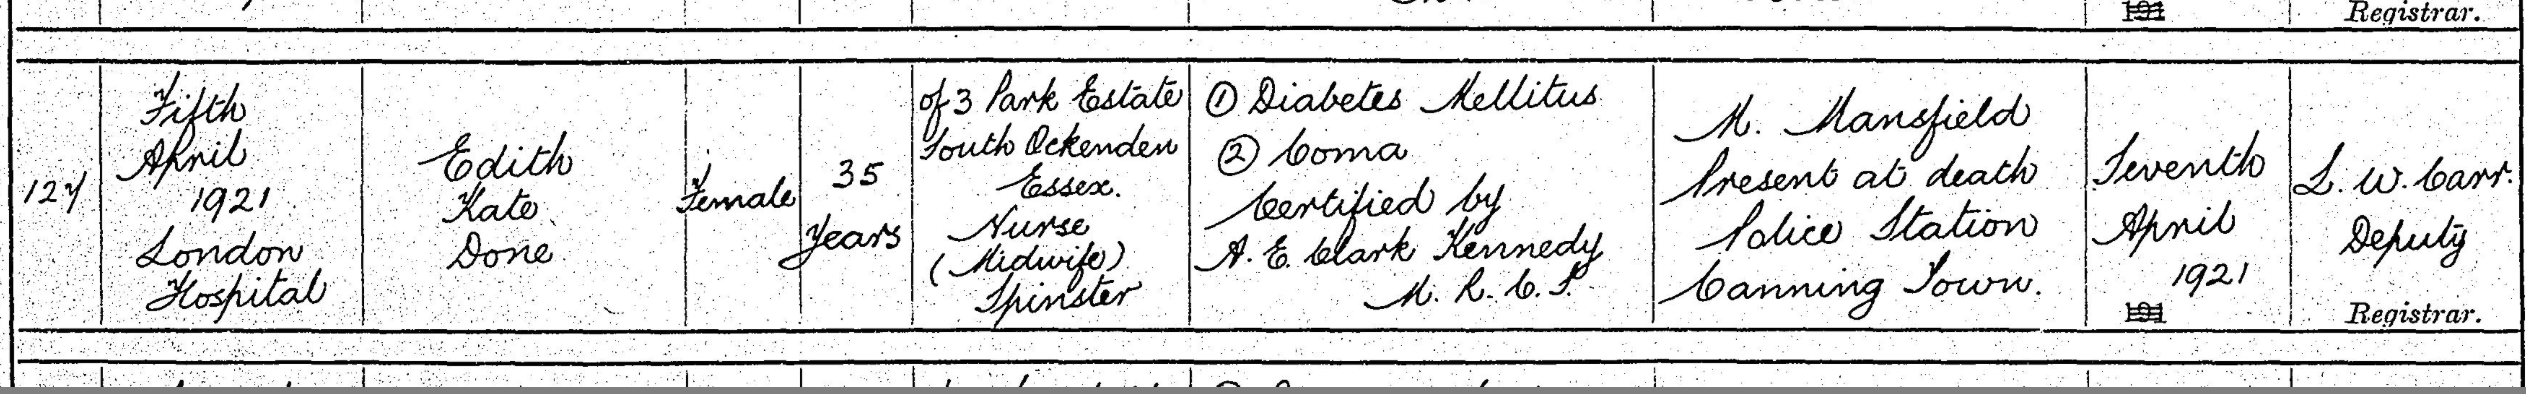 Registrar.
127
Fifth
April
1921
London
Hospital
Edith
Kate
Done
Female
35
Years
of 3 Park Estate
South Ockenden
Essex.
Nurse
(Midwife)
Spinster
① Diabetes Mellitus
② Coma
Certified by
A. E. Clark Kennedy
M. R. C. P.
M. Mansfield
Present at death
Police Station
Canning Town.
Seventh
April
1921
191
L. W. Carr.
Deputy
Registrar.